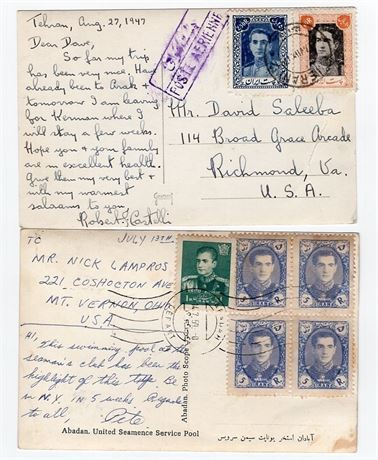 Tehran, Aug. 27, 1947
Dear Dave,
So far my trip
has been very nice. Have
already been to Arak &
tomorrow I am leaving
for Kerman where I
will stay a few weeks.
Hope you & your family
are in excellent health.
Give them my very best &
with my warmest
salaams to you.
Robert G.
POSTE AERIENNE
Mr. David Saleeba
114 Broad Grace Arcade
Richmond, Va.
U.S.A.
TO
JULY 13TH
MR. NICK LAMPROS
221 COSHOCTON AVE
MT. VERNON, OHIO
U.S.A
Hi,
This swimming pool at the
seaman's club has been the
highlight of this trip. Be
in N.Y. IN 5 weeks Regards
to all. Pete
Abadan. United Seamence Service Pool
Abadan. Photo Scope
آبادان استخر یونایت سیمن سرویس